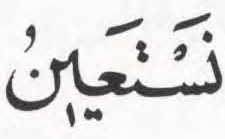 نَسْتَعِينُ